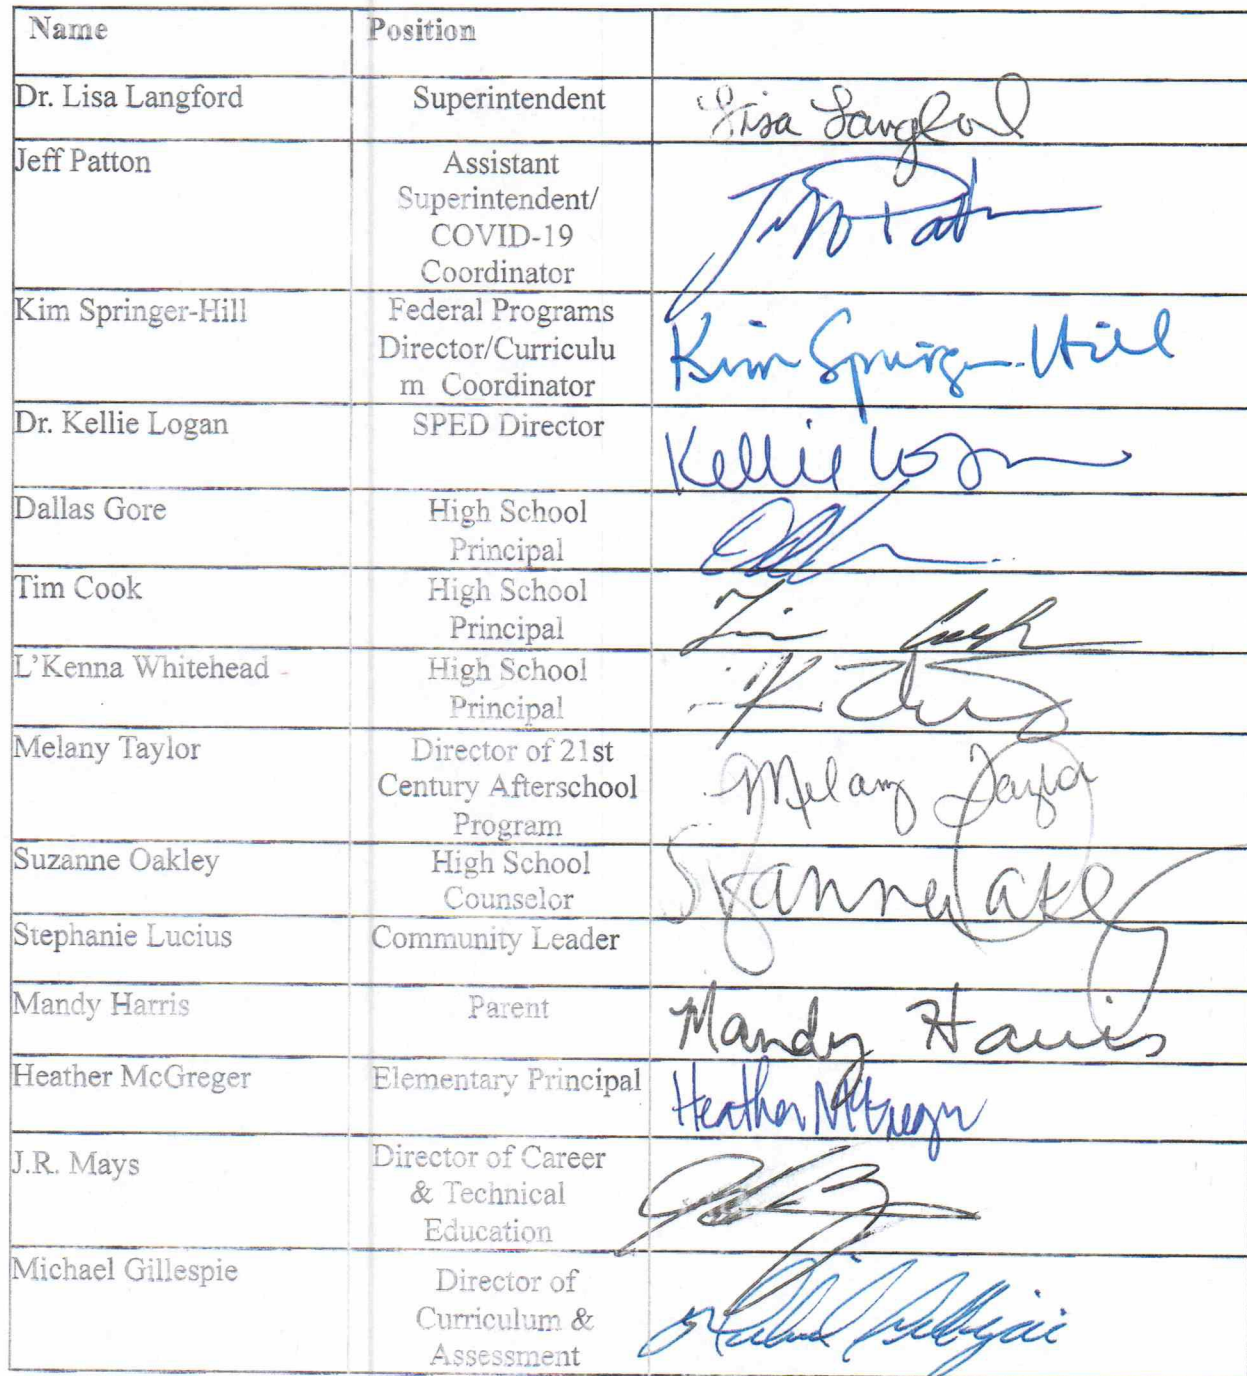 Name Position
Dr. Lisa Langford Superintendent Lisa Langford
Jeff Patton Assistant
Superintendent/
COVID-19
Coordinator
Jeff Patton
Kim Springer-Hill Federal Programs
Director/Curriculu
m Coordinator
Kim Springer-Hill
Dr. Kellie Logan SPED Director Kellie Logan
Dallas Gore High School
Principal
Tim Cook High School
Principal
Tim Cook
L'Kenna Whitehead High School
Principal
Melany Taylor Director of 21st
Century Afterschool
Program
Melany Taylor
Suzanne Oakley High School
Counselor
Suzanne Oakley
Stephanie Lucius Community Leader
Mandy Harris Parent Mandy Harris
Heather McGreger Elementary Principal Heather McGregor
J.R. Mays Director of Career
& Technical
Education
Michael Gillespie Director of
Curriculum &
Assessment
Michael Gillespie